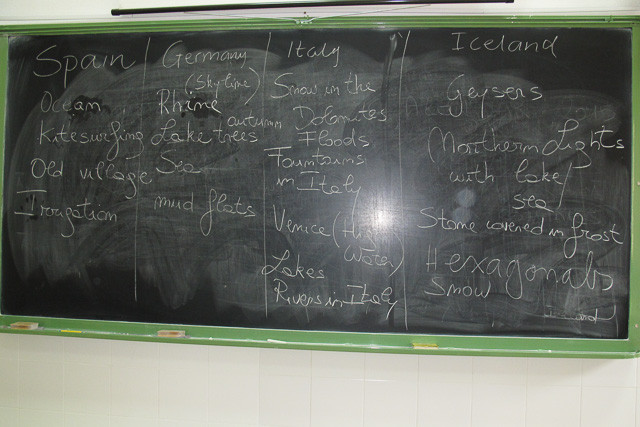 Spain
Ocean
Kitesurfing
Old village
Irrigation
Germany
(Skyline)
Rhine
Lake autumn trees
Sea
mud flats
Italy
Snow in the
Dolomites
Floods
Fountains
in Italy
Venice (High
Water)
Lakes
Rivers in Italy
Iceland
Geysers
(Northern Lights
with lake/
sea
Stone covered in frost
Hexagonals
Snow